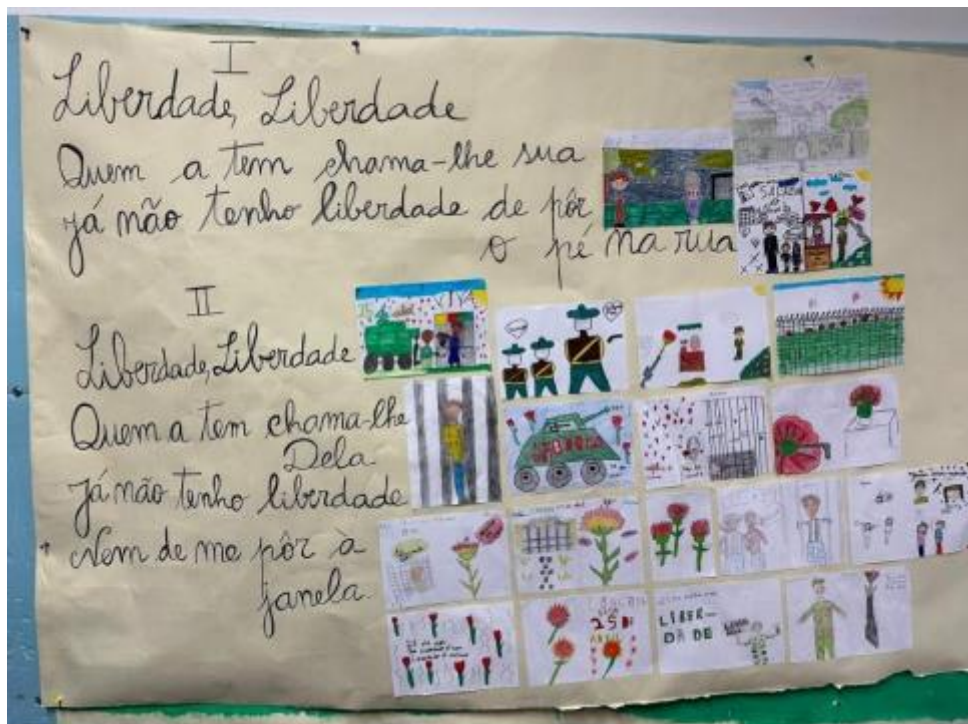 I
Liberdade, Liberdade
Quem a tem chama-lhe sua
já não tenho liberdade de pôr
o pé na rua
II
Liberdade, Liberdade
Quem a tem chama-lhe
Dela
Já não tenho liberdade
Nem de me pôr à
janela.
VIVA
25 DE
ABRIL
LIBER-
DADE